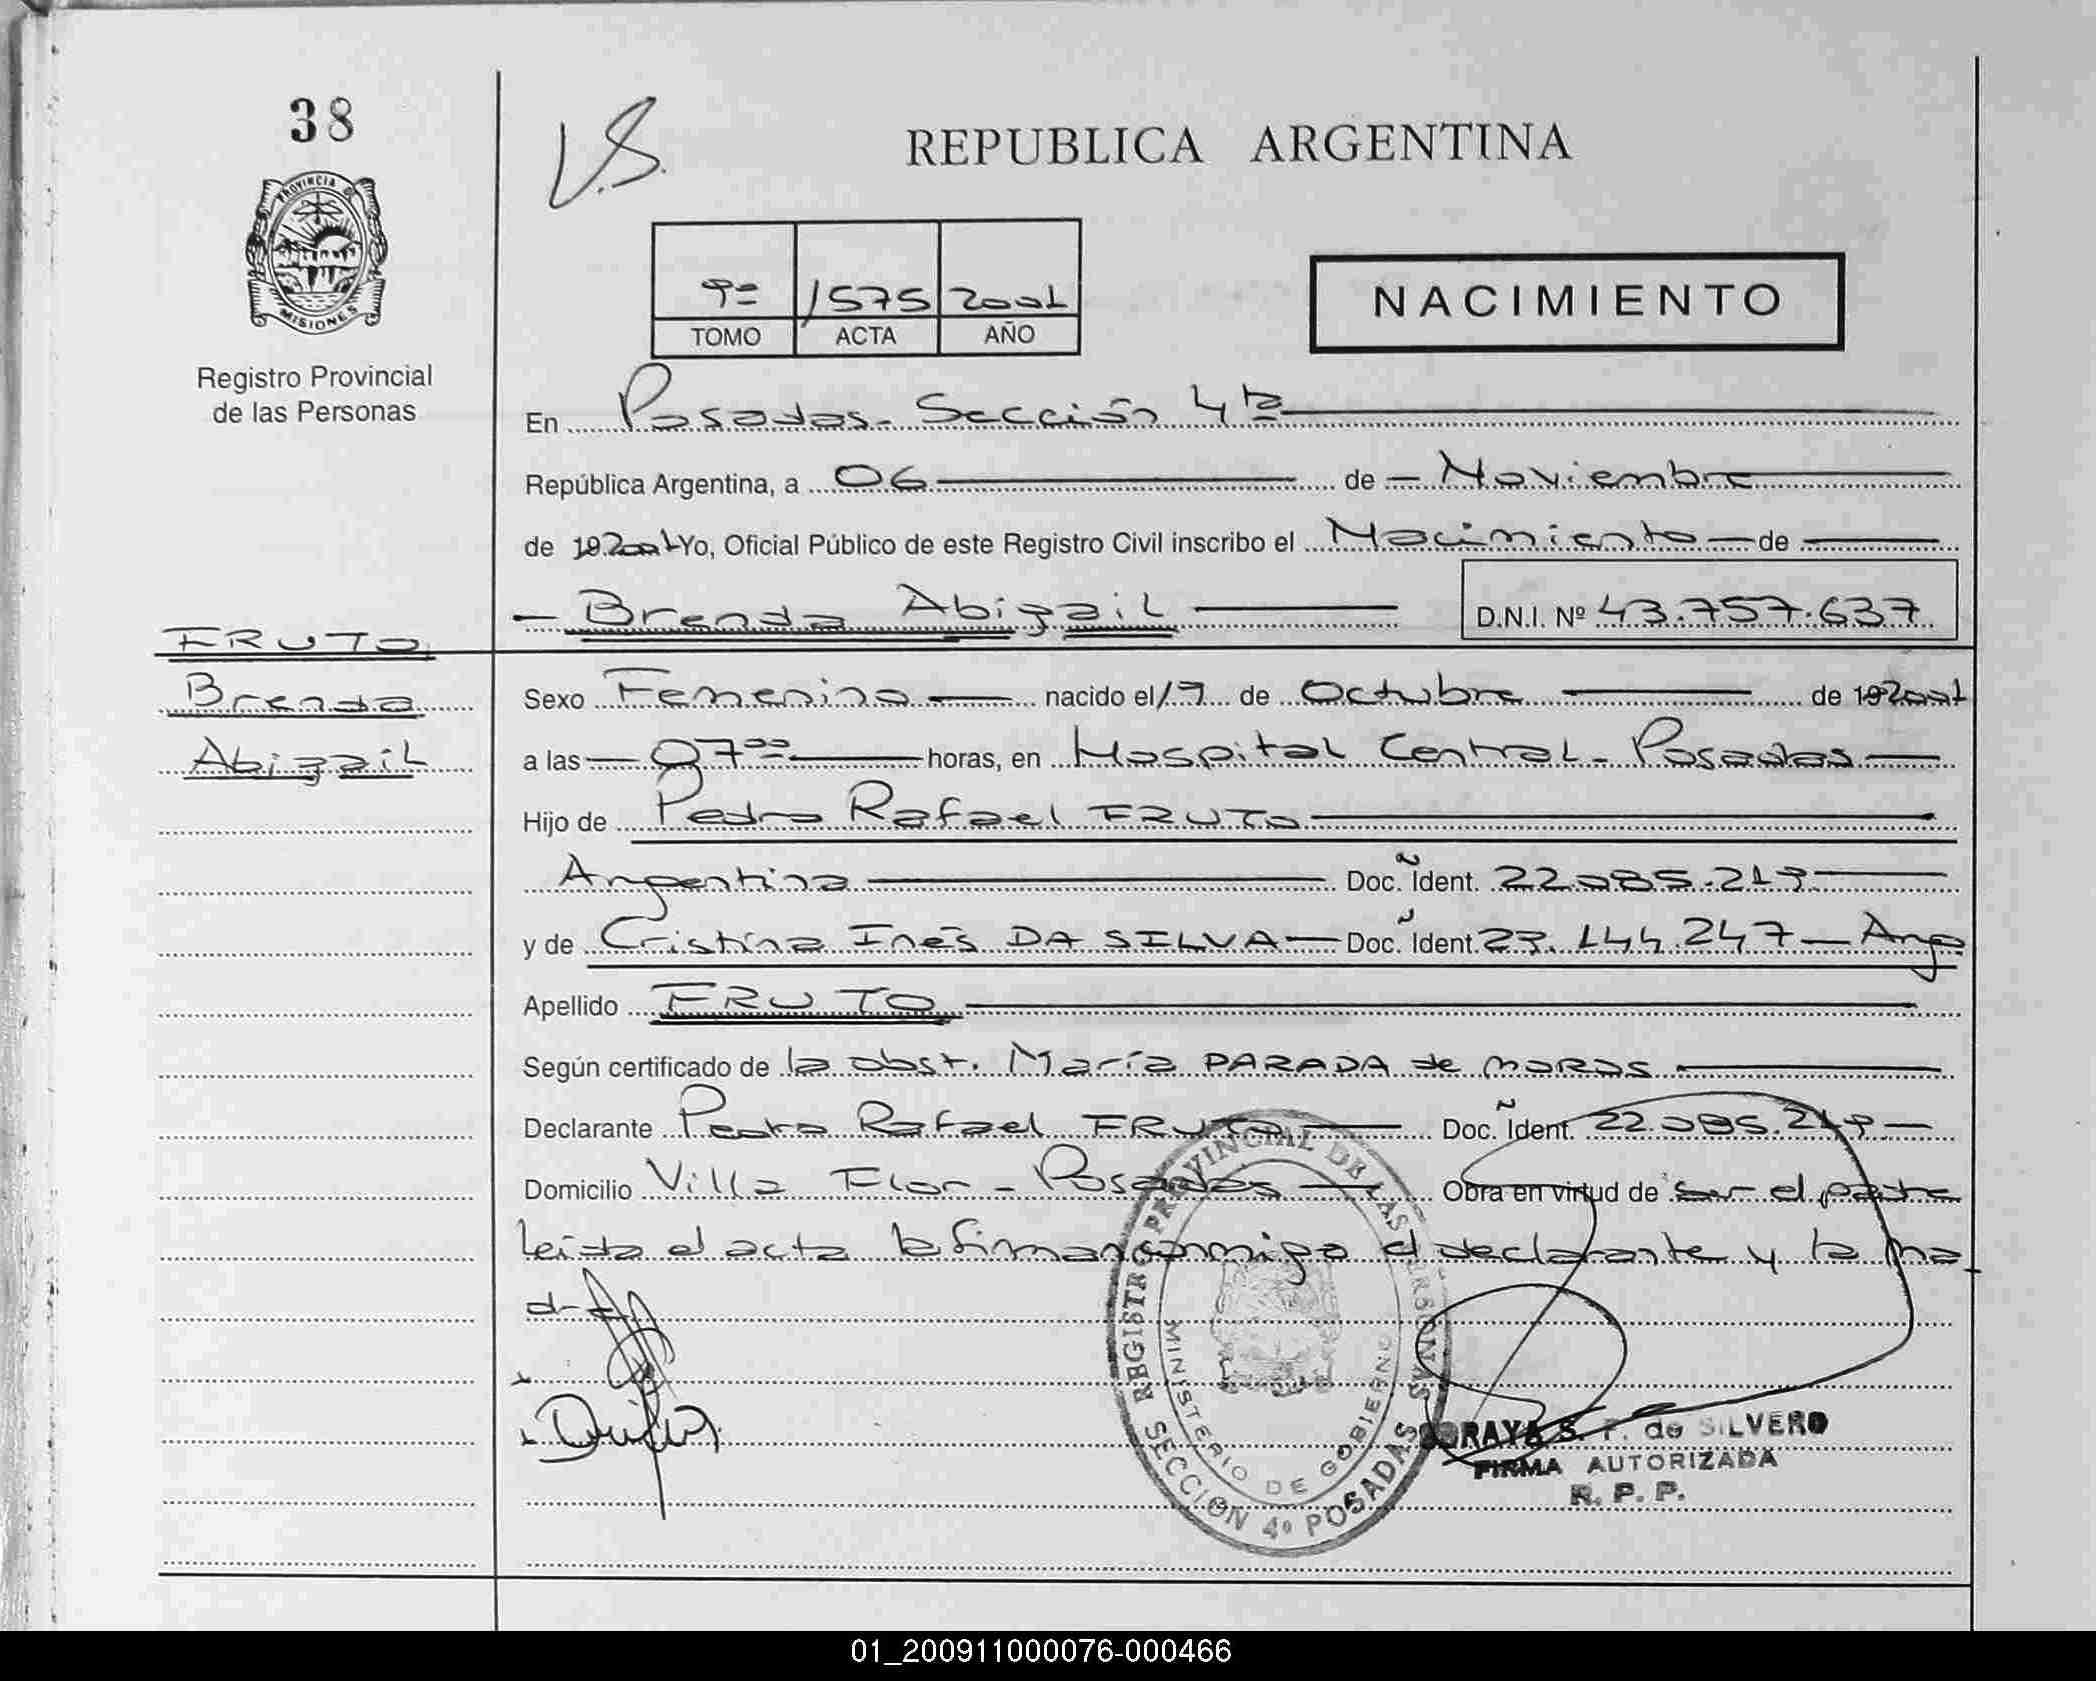 38
PROVINCIA DE
MISIONES
Registro Provincial
de las Personas
V.S.
REPUBLICA ARGENTINA
9º 1575 2001
TOMO ACTA AÑO
NACIMIENTO
En Posadas - Sección 4ta
República Argentina, a 06 de Noviembre
de 19 2001 Yo, Oficial Público de este Registro Civil inscribo el Nacimiento de
Brenda Abigail D.N.I. Nº 43.757.637
FRUTO
Brenda
Abigail
Sexo Femenino nacido el 17 de Octubre de 19 2001
a las 07ºº horas, en Hospital Central - Posadas
Hijo de Pedro Rafael FRUTO
Argentina Doc. Ident. 22.085.219
y de Cristina Inés DA SILVA Doc. Ident. 23.144.247 - Arg
Apellido FRUTO
Según certificado de la obst. María PARADA de MORAS
Declarante Pedro Rafael FRUTO Doc. Ident. 22.085.219
Domicilio Villa Flor - Posadas Obra en virtud de ser el padre
leida el acta la firman conmigo el declarante y la ma
dre
REGISTRO PROVINCIAL DE LAS PERSONAS
MINISTERIO DE GOBIERNO
SECCION 4º POSADAS
SORAYA S. F. de SILVERO
FIRMA AUTORIZADA
R. P. P.
01_200911000076-000466